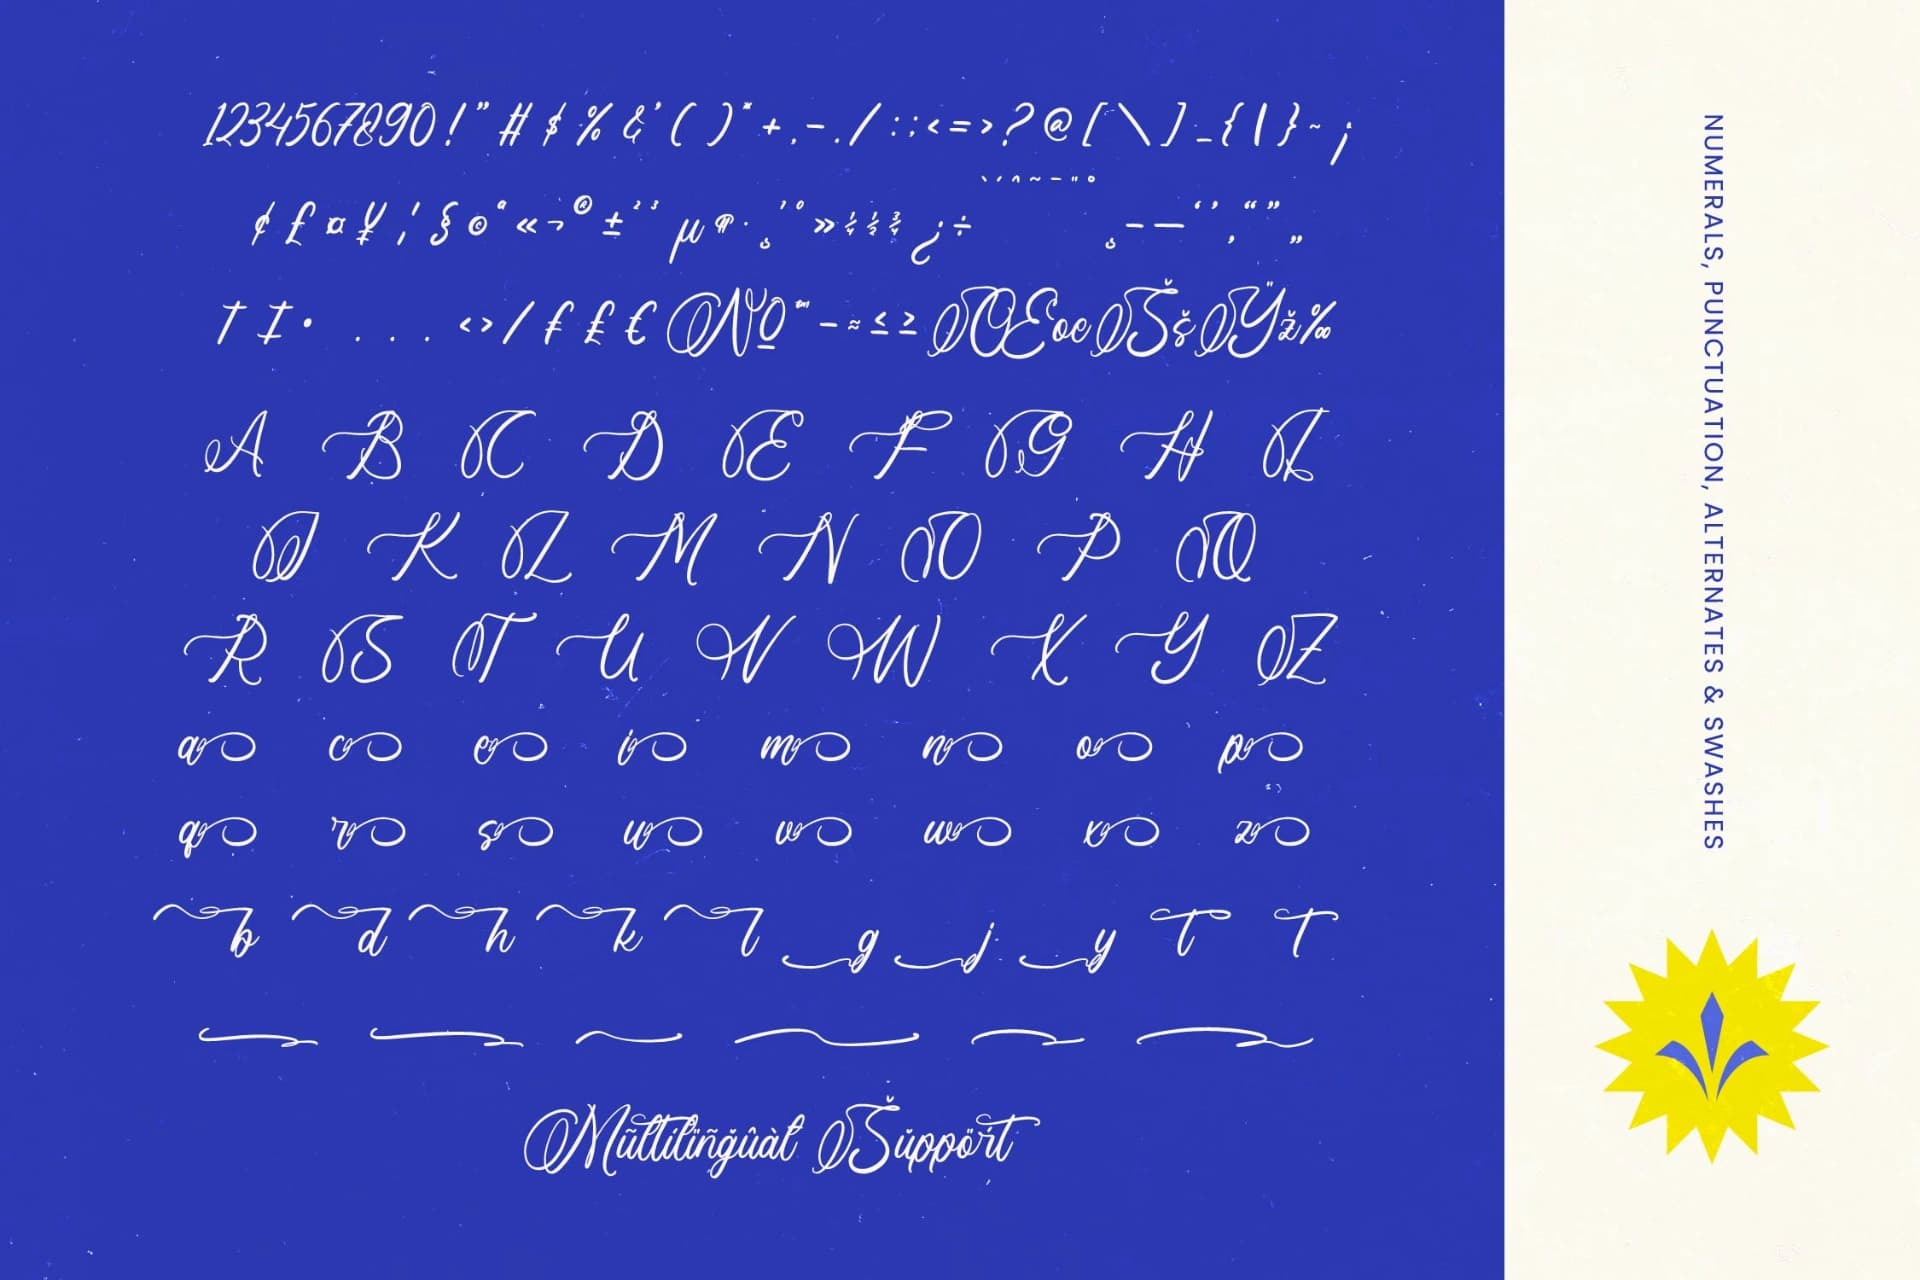 1234567890!"#$%&'()*+,-./:;<=>?@[\]_{|}~¡
¢£¤¥¦§©ª«¬®±²³µ¶·¸¹º»¼½¾¿÷˛–—‘’‚“”„
†‡•...‹›⁄₣₤€№™−≈≤≥ŒœŠšŸž‰
A B C D E F G H I
J K L M N O P Q
R S T U V W X Y Z
a c e i m n o p
q r s u v w x z
b d h k l g j y T T
Mũltilïñğûàl Šŭppört
NUMERALS, PUNCTUATION, ALTERNATES & SWASHES